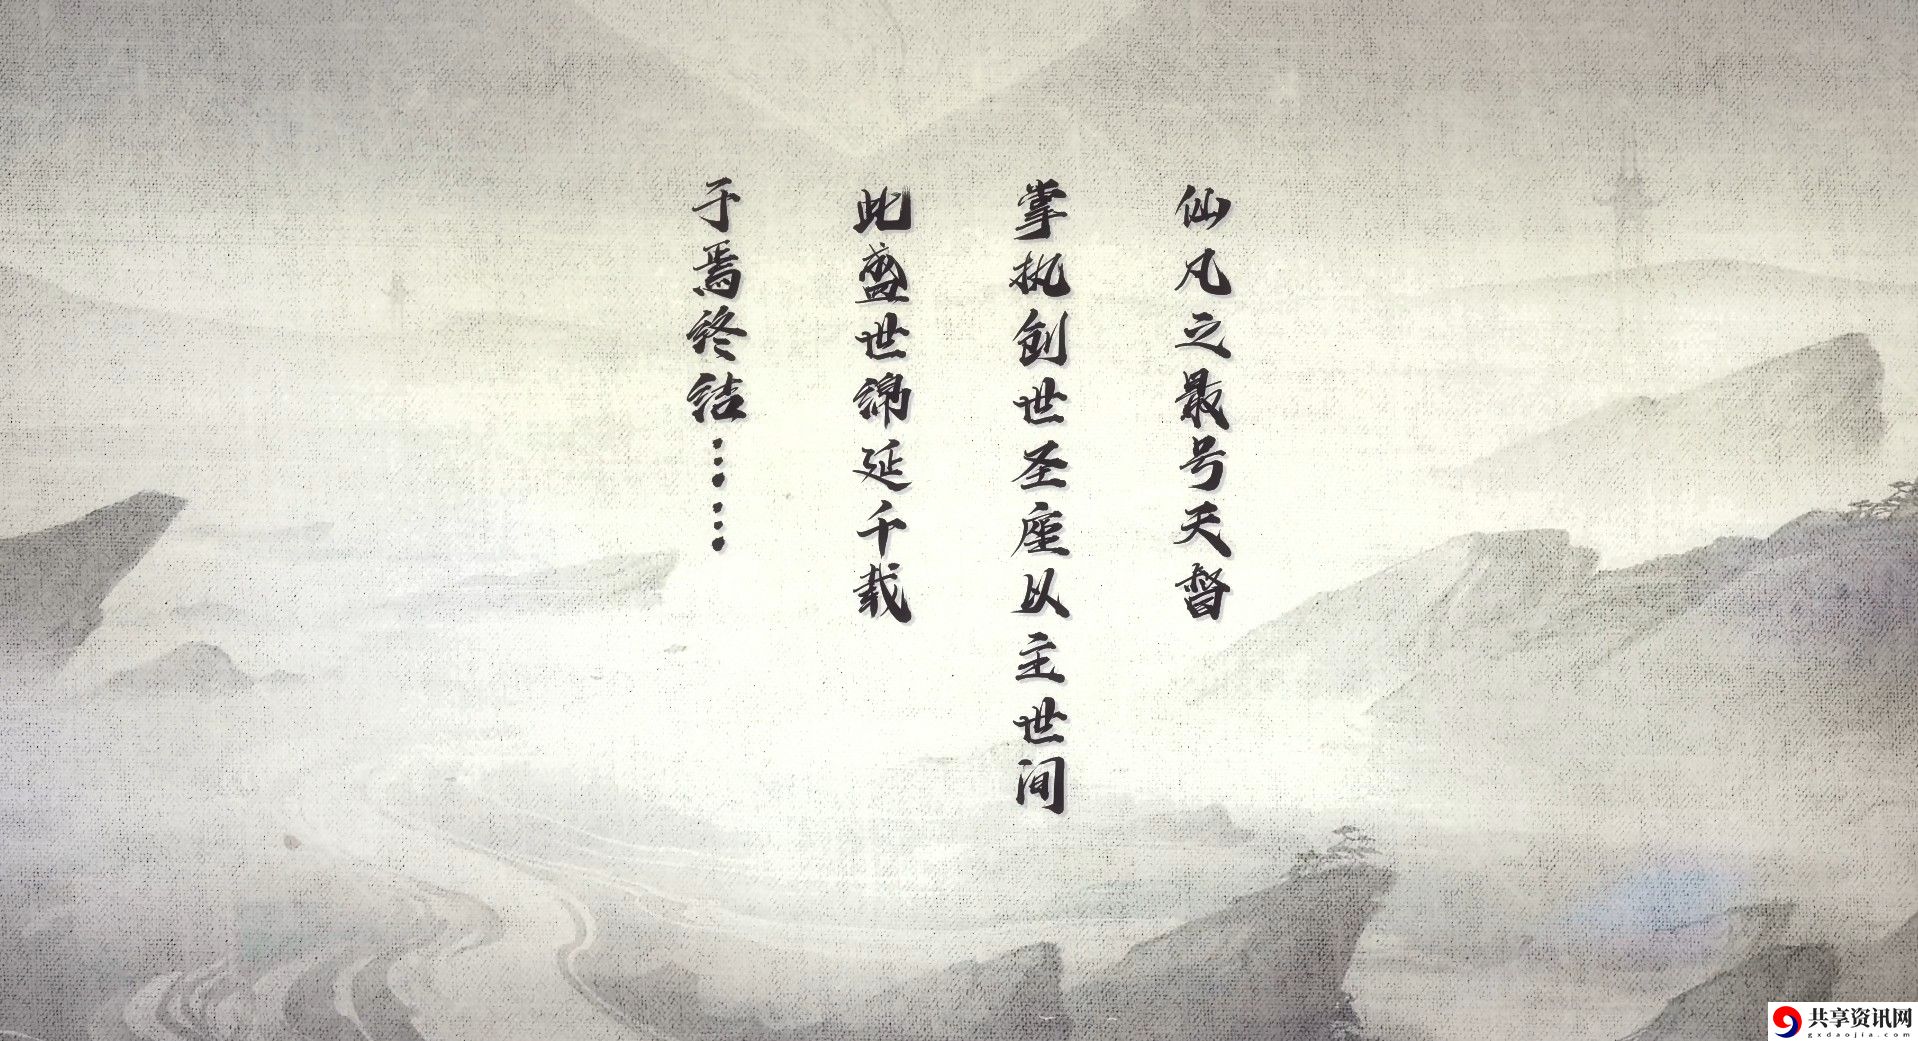 仙凡之最号天督
掌执创世圣座以主世间
此盛世绵延千载
于焉终结……
共享资讯网
gxdaojia.com